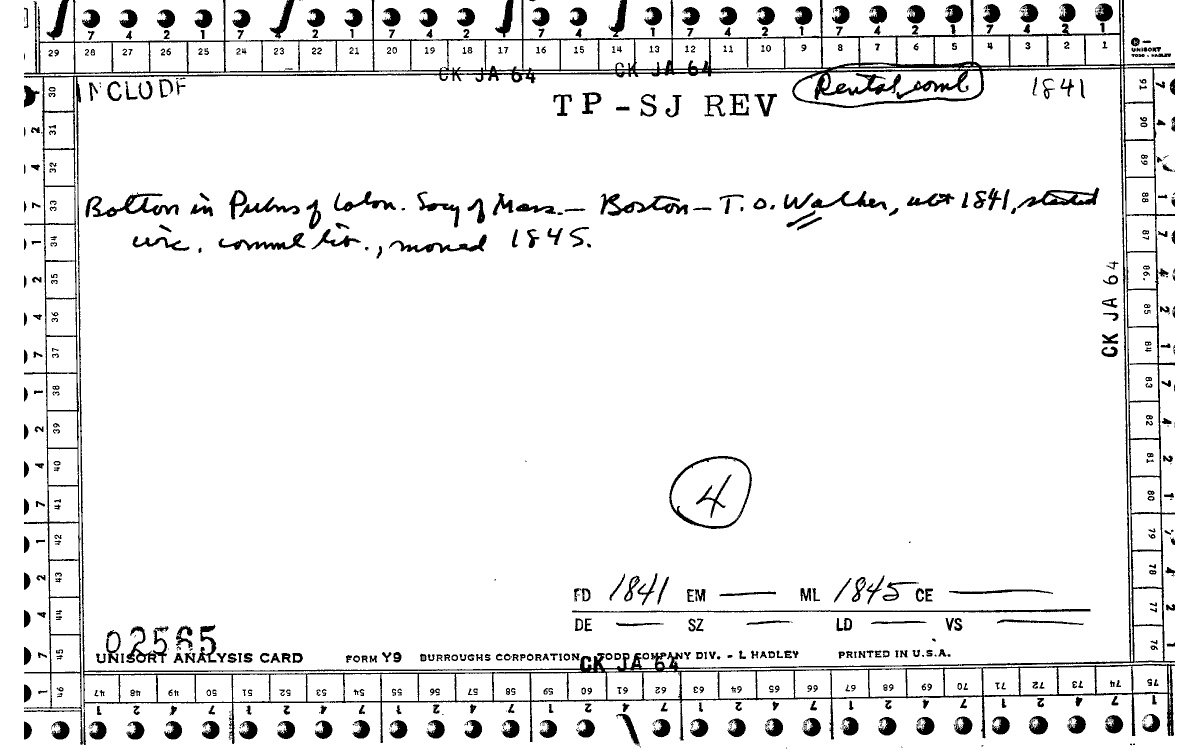 7 4 2 1 7 4 2 1 7 4 2 1 7 4 2 1 7 4 2 1 7 4 2 1 7 4 2 1
29 28 27 26 25 24 23 22 21 20 19 18 17 16 15 14 13 12 11 10 9 8 7 6 5 4 3 2 1
UNISORT
TODD - HADLEY
CK JA 64 CK JA 64
INCLUDE
TP-SJ REV
Rental, coml
1841
Bolton in Pubns of Colon. Socy of Mass. — Boston — T.O. Walker, abt 1841, started
circ. comml lib., moved 1845.
CK JA 64
4
FD 1841 EM — ML 1845 CE —
DE — SZ — LD — VS —
02565
UNISORT ANALYSIS CARD FORM Y9 BURROUGHS CORPORATION TODD COMPANY DIV. - L HADLEY PRINTED IN U.S.A.
CK JA 64
30 31 32 33 34 35 36 37 38 39 40 41 42 43 44 45 46
2 4 7 1 2 4 7 1 2 4 7 1 2 4 7 1
91 90 89 88 87 86 85 84 83 82 81 80 79 78 77 76
47 48 49 50 51 52 53 54 55 56 57 58 59 60 61 62 63 64 65 66 67 68 69 70 71 72 73 74 75
1 2 4 7 1 2 4 7 1 2 4 7 1 2 4 7 1 2 4 7 1 2 4 7 1 2 4 7 1